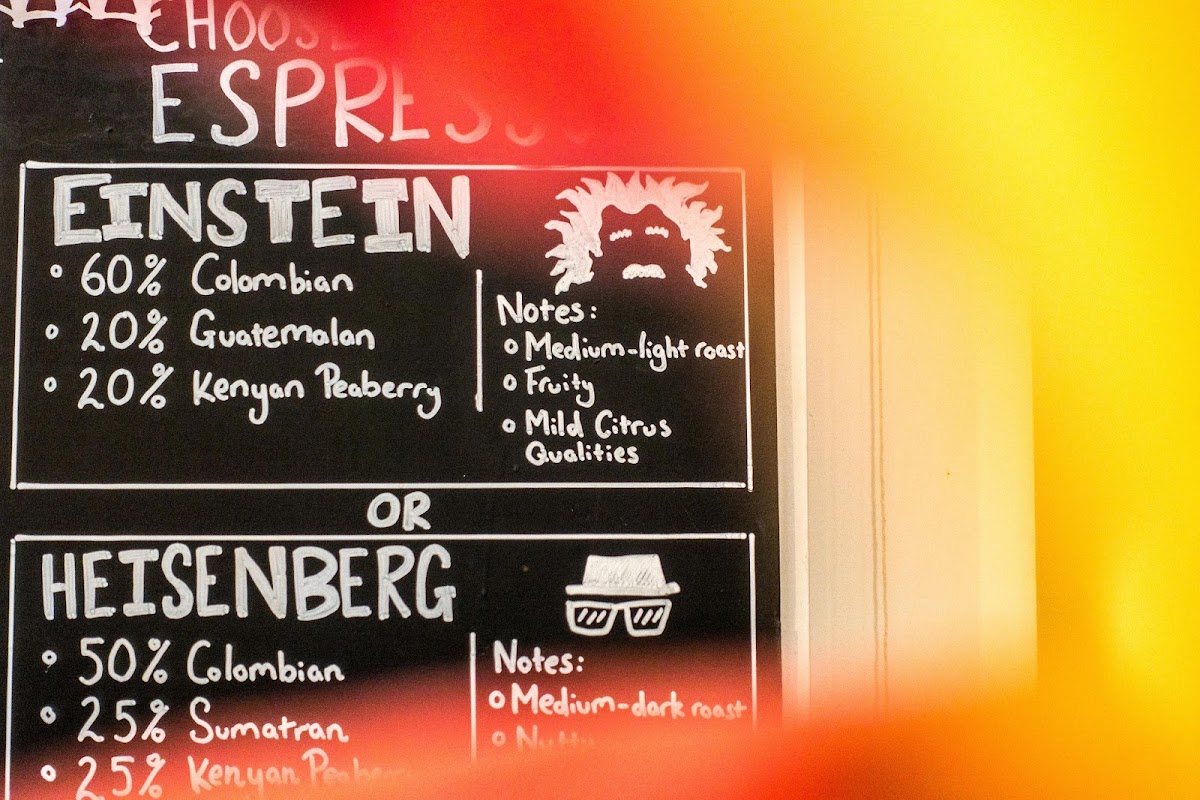 CHOOSE
ESPRESSO
EINSTEIN
• 60% Colombian
• 20% Guatemalan
• 20% Kenyan Peaberry
Notes:
• Medium-light roast
• Fruity
• Mild Citrus
Qualities
OR
HEISENBERG
• 50% Colombian
• 25% Sumatran
• 25% Kenyan Peaberry
Notes:
• Medium-dark roast
• Nutty